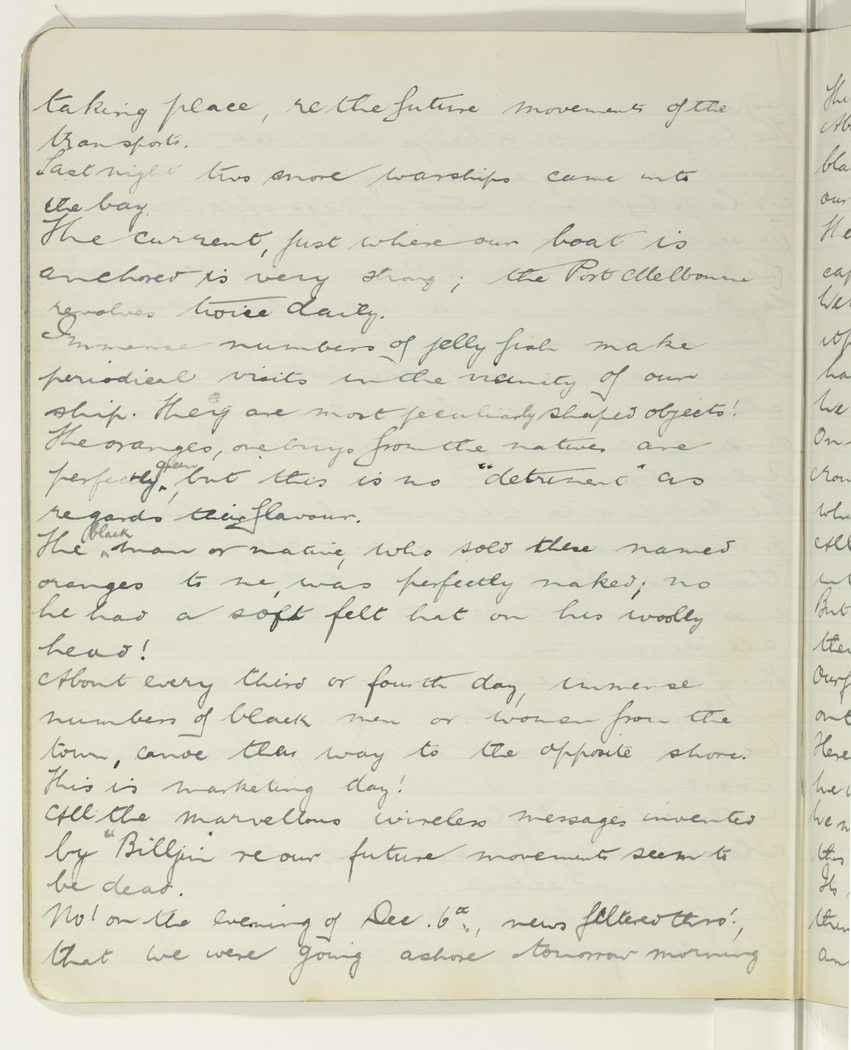 taking place, re the future movements of the
transports.
Last night two more warships came into
the bay.
The current, just where our boat is
anchored is very strong; the Port Melbourne
revolves twice daily.
Immense numbers of jelly fish make
periodical visits in the vicinity of our
ship. They are most peculiarly shaped objects!
The oranges, one buys from the natives are
perfectly green, but this is no "detriment" as
regards their flavour.
The black man or native, who sold these named
oranges to me, was perfectly naked; no
he had a soft felt hat on his woolly
head!
About every third or fourth day, immense
numbers of black men or women from the
town, canoe thar way to the opposite shore.
This is marketing day!
All the marvellous wireless messages invented
by "Billjin" re our future movements seem to
be dead.
No! on the evening of Dec. 6th, news filtered thro',
that we were going ashore tomorrow morning
The
Ab
bla
our
He
cap
We
ha
we
On
crow
whe
All
int
But
ther
Our f
out
Here
he
We n
this
Its,
then
an